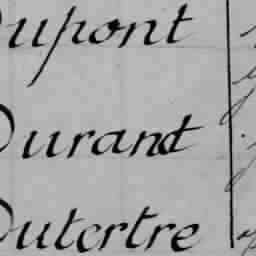 Dupont
Durand
Dutertre